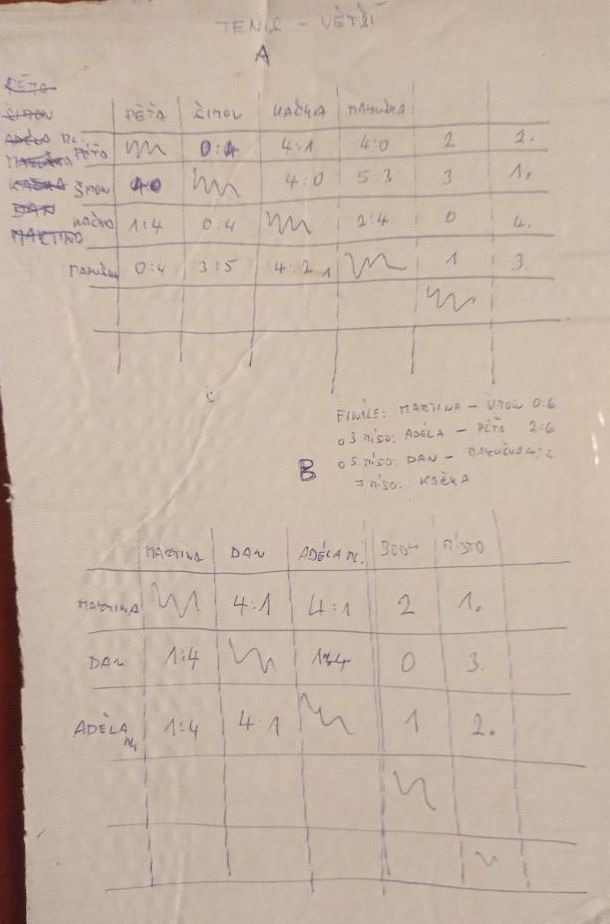 TENIS - VĚTŠÍ
A
PÉŤA
ŠIMON
ADÉLA ML.
MARUŠKA
KAČKA
DAN
MARTINA
PÉŤA ŠIMON KAČKA MARUŠKA
PÉŤA 0:4 4:1 4:0 2 2.
ŠIMON 4:0 4:0 5:3 3 1.
KAČKA 1:4 0:4 2:4 0 4.
MARUŠKA 0:4 3:5 4:2 1 3
FINÁLE: MARTINA - ŠIMON 0:6
O 3 MÍSO: ADÉLA - PÉŤA 2:6
O 5. MÍSO: DAN - MARUŠKA 4:2
7 MÍSO: KAČKA
B
MARTINA DAN ADÉLA ML. BODY MÍSTO
MARTINA 4:1 4:1 2 1.
DAN 1:4 1:4 0 3.
ADÉLA ML. 1:4 4:1 1 2.